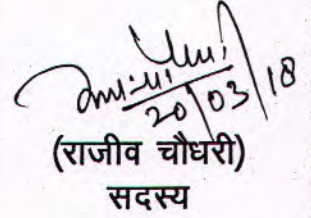 20/03/18
(राजीव चौधरी)
सदस्य